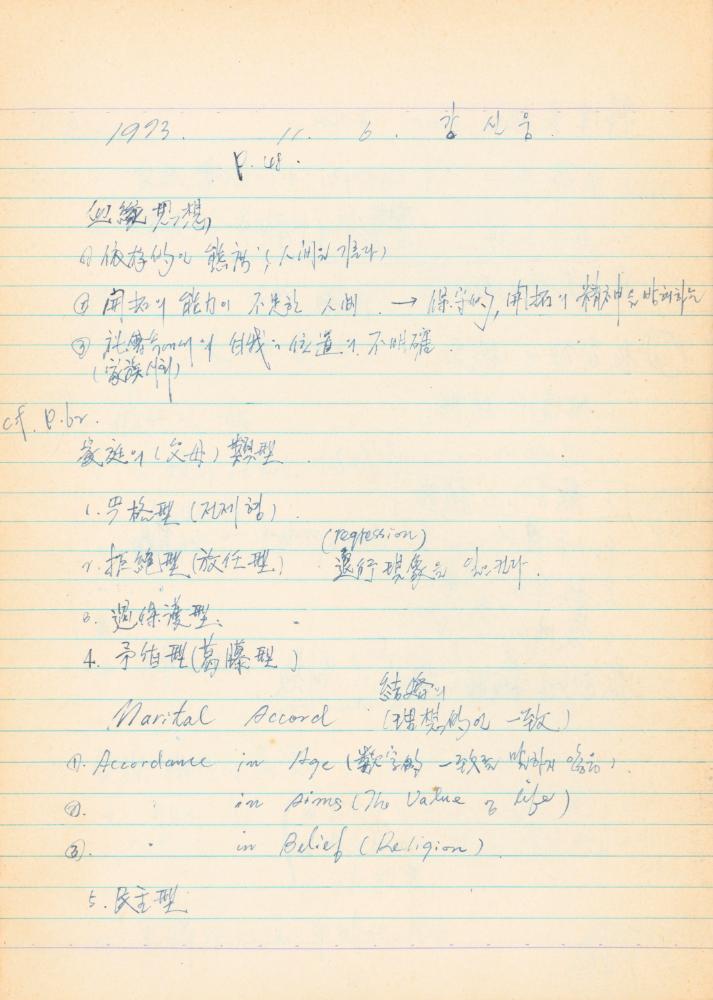 1973. 11. 6. 강신웅
P. 48.
血縁思想,
① 依存的인 態度 (人間을 기른다)
② 開拓의 能力이 不足한 人間. → 保守的, 開拓의 精神을 방해하는
③ 社會속에서 自我의 位置의 不明確.
(家族 사회)
cf. P. 62.
家庭의 (父母) 類型
1. 嚴格型 (전제형).
(regression)
2. 拒絶型 (放任型) 退行現象을 일으킨다.
3. 過保護型.
4. 矛盾型 (葛藤型)
結婚의
Marital Accord (理想的인 一致)
①. Accordance in Age (數字的 一致를 말하지 않음).
②. " in Aims (The Value of life)
③. " in Belief (Religion)
5. 民主型